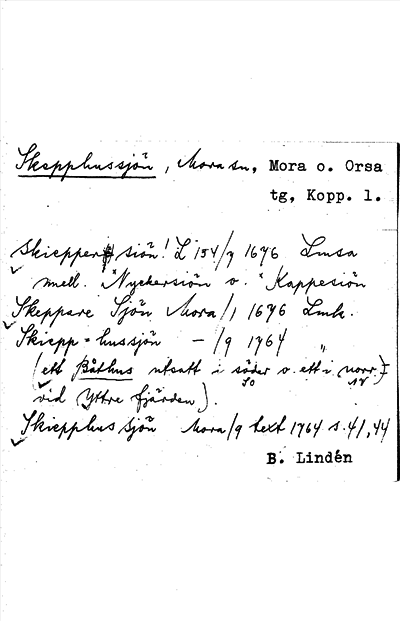 Skepphussjön, Mora sn, Mora o. Orsa
tg, Kopp. l.
Skiepper siön! L 154/7 1676 Lmsa
mell. "Nyckersiön o. "Kappesiön
Skeppare Sjön Mora/1 1676 Lmk.
Skiepp=hussjön – /9 1764 "
(ett Båthus utsatt i söder o. ett i norr
vid Yttre fjärden).
Skiepphus sjön Mora/9 text 1764 s. 41, 44
B. Lindén